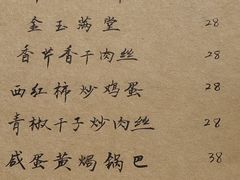 金玉满堂 28
香芹香干肉丝 28
西红柿炒鸡蛋 28
青椒干子炒肉丝 28
咸蛋黄焗锅巴 38